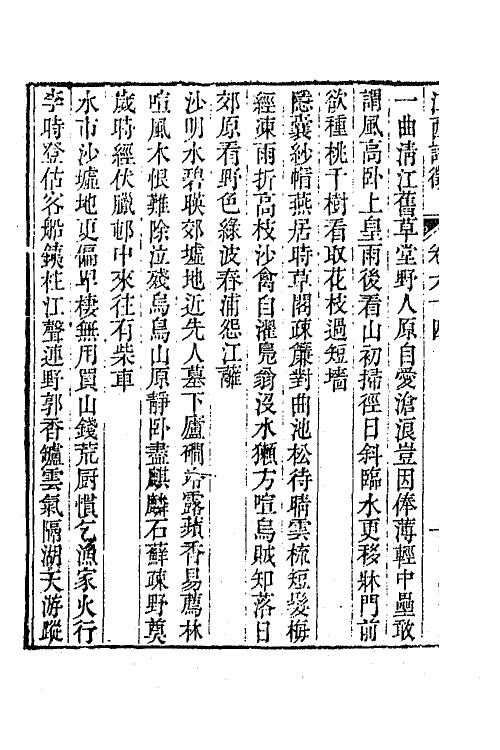 江西詩徵　卷六十四　一
一曲清江舊草堂野人原自愛滄浪豈因俸薄輕中壘敢
謂風高卧上皇雨後看山初掃徑日斜臨水更移牀門前
欲種桃千樹看取花枝過短墻
隱囊紗帽燕居時草閣疎簾對曲池松待晴雲梳短髮梅
經凍雨折高枝沙禽自濯鳧翁沒水獺方喧烏賊知落日
郊原看野色綠波春浦怨江蘺
沙明水碧暎郊墟地近先人墓下廬磵沚露蘋香易薦林
喧風木恨難除泣殘烏鳥山原靜卧盡麒麟石蘚疎野奠
歲時經伏臘邨中來往有柴車
水市沙墟地更偏畢棲無用買山錢荒厨慣乞漁家火行
李時登估客船鐵柱江聲連野郭香鑪雲氣隔湖天游蹤